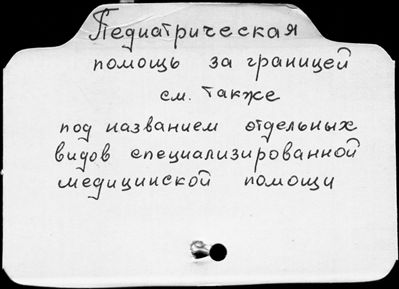 Педиатрическая
помощь за границей
см. также
под названием отдельных
видов специализированной
медицинской помощи